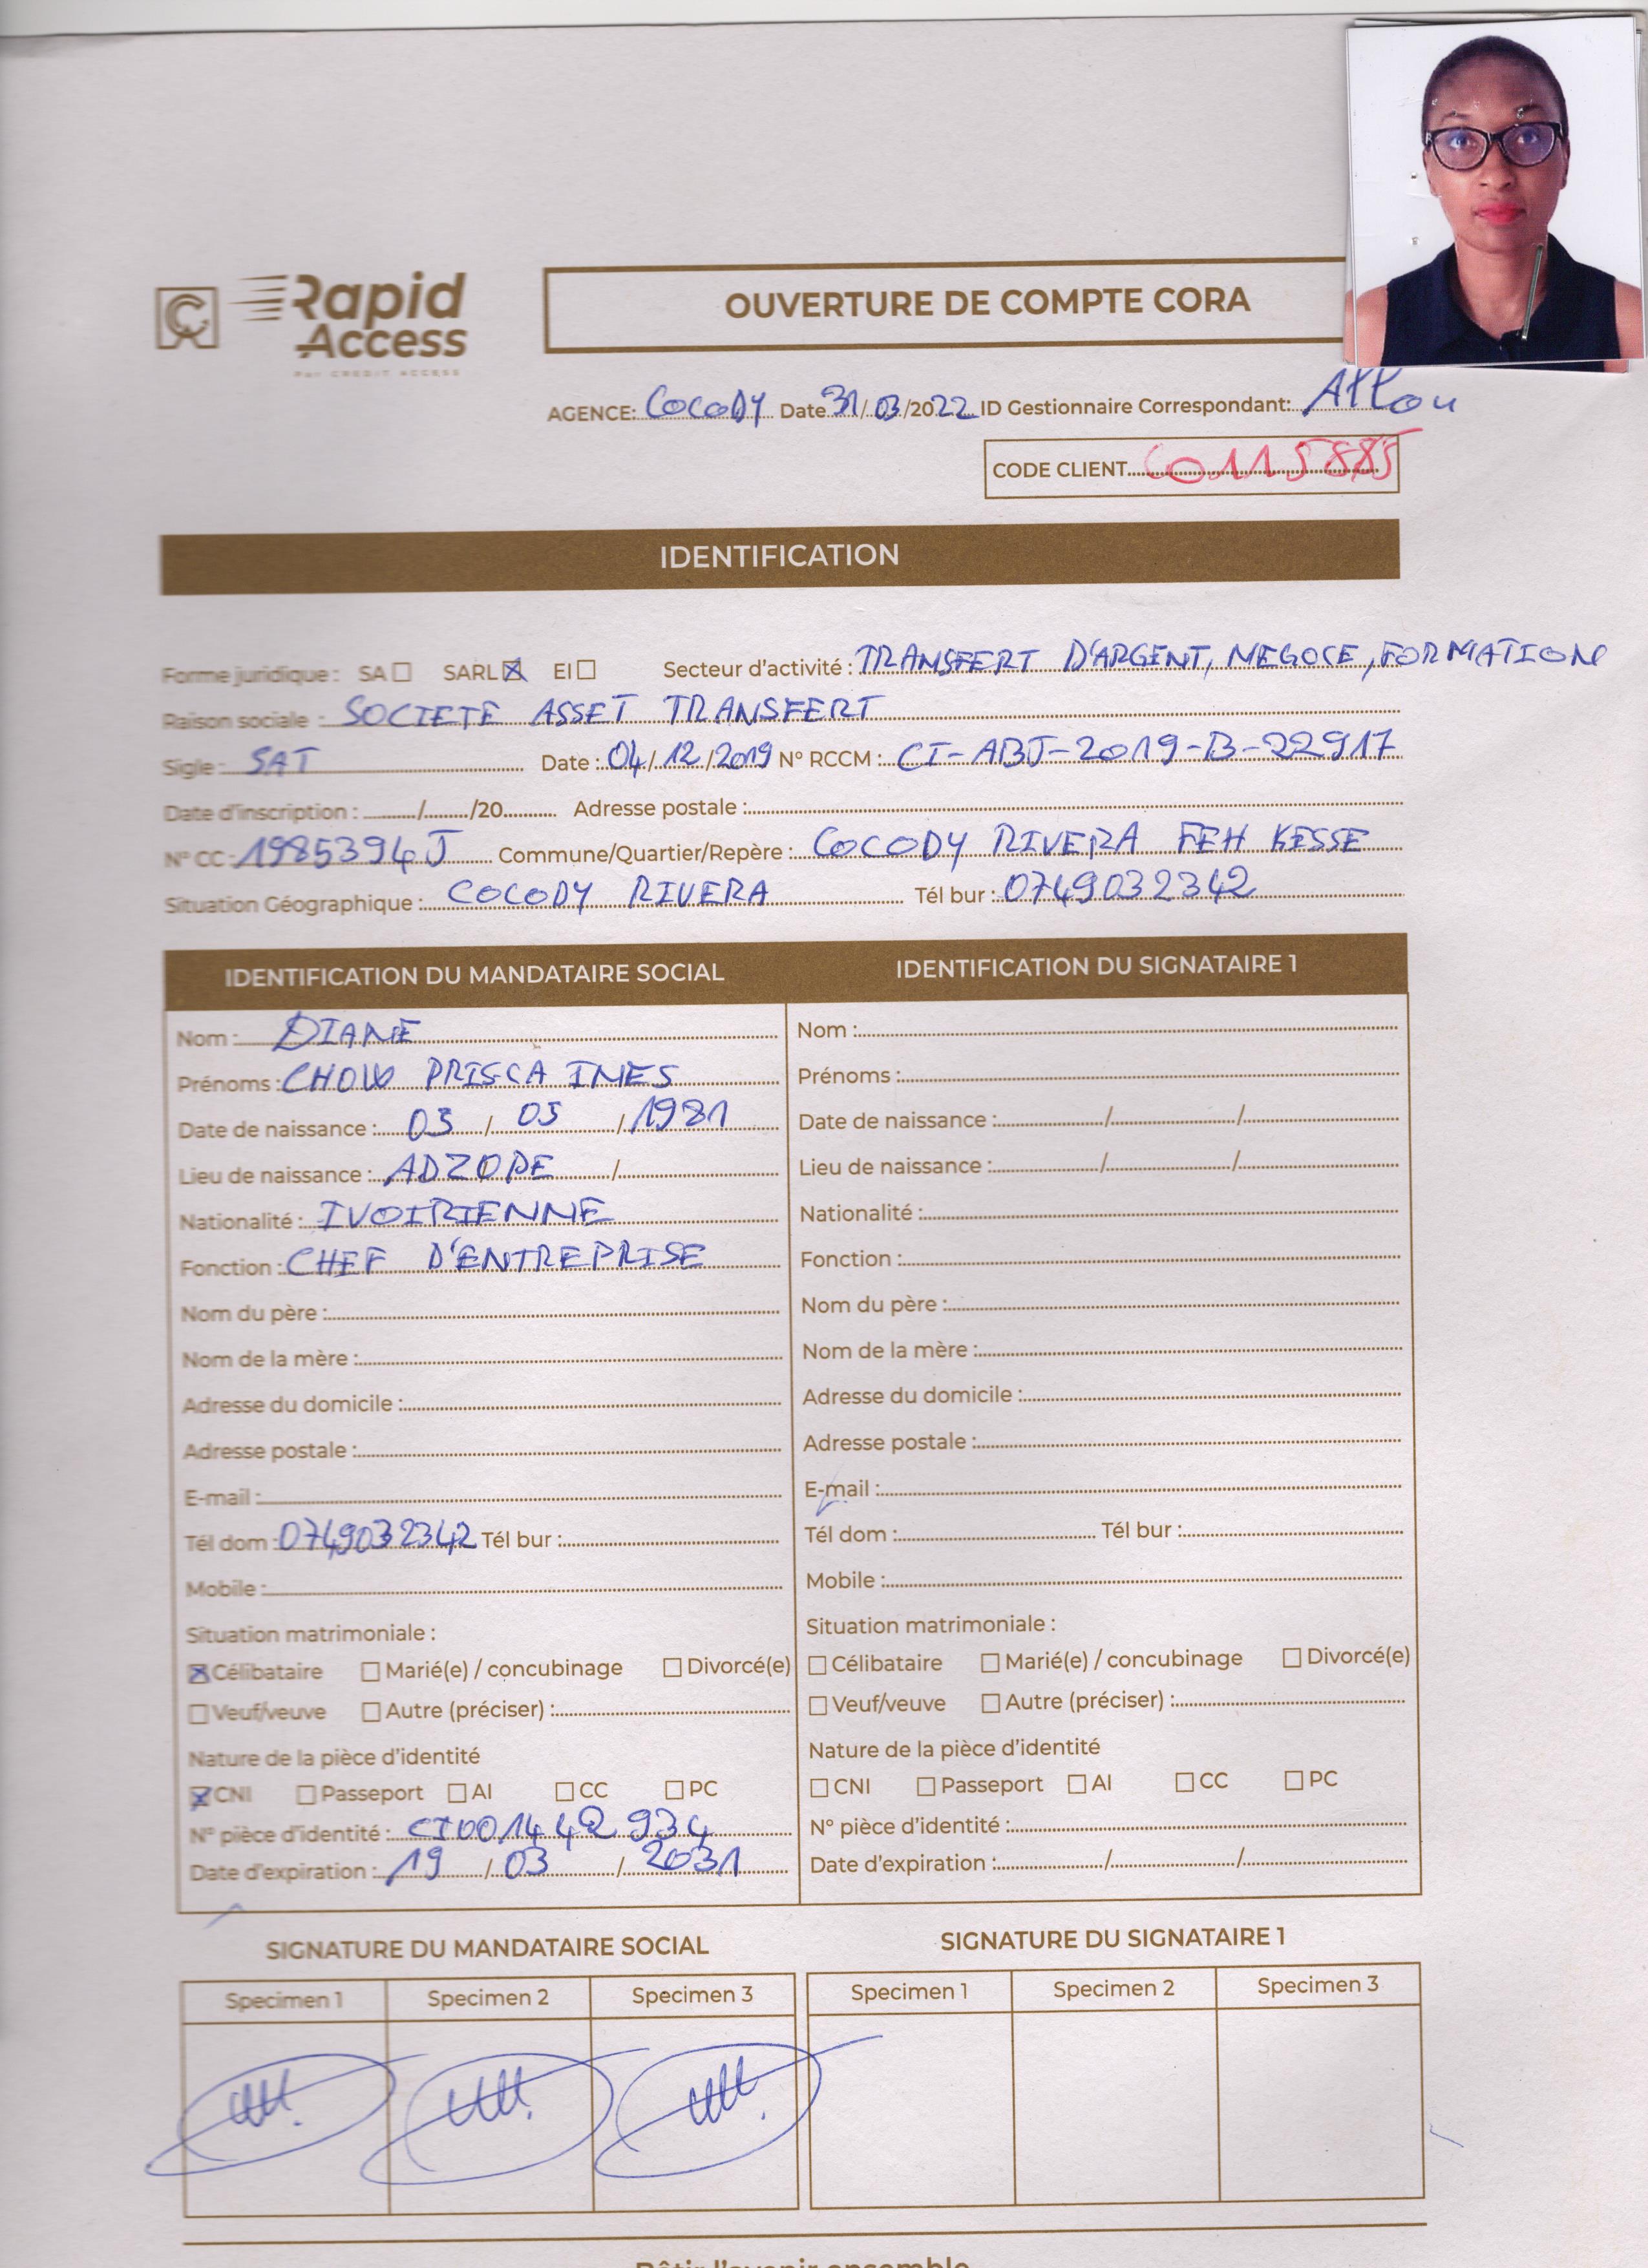 Rapid
Access
Par CREDIT ACCESS
OUVERTURE DE COMPTE CORA
AGENCE: COCODY Date 31/03/2022 ID Gestionnaire Correspondant: Attou
CODE CLIENT C0115885
IDENTIFICATION
Forme juridique : SA☐ SARL☒ EI☐ Secteur d'activité : TRANSFERT D'ARGENT, NEGOCE, FORMATION
Raison sociale : SOCIETE ASSET TRANSFERT
Sigle : SAT Date : 04/12/2019 N° RCCM : CI-ABJ-2019-B-22917
Date d'inscription : ......../......../20........... Adresse postale :
N° CC : 1985394J Commune/Quartier/Repère : COCODY RIVERA FEH KESSE
Situation Géographique : COCODY RIVERA Tél bur : 0749032342
IDENTIFICATION DU MANDATAIRE SOCIAL
Nom : DIANE
Prénoms : CHOW PRISCA INES
Date de naissance : 03 / 05 / 1981
Lieu de naissance : ADZOPE /
Nationalité : IVOIRIENNE
Fonction : CHEF D'ENTREPRISE
Nom du père :
Nom de la mère :
Adresse du domicile :
Adresse postale :
E-mail :
Tél dom : 0749032342 Tél bur :
Mobile :
Situation matrimoniale :
☒Célibataire ☐Marié(e) / concubinage ☐Divorcé(e)
☐Veuf/veuve ☐Autre (préciser) :
Nature de la pièce d'identité
☒CNI ☐Passeport ☐AI ☐CC ☐PC
N° pièce d'identité : CI001442934
Date d'expiration : 19 / 03 / 2031
IDENTIFICATION DU SIGNATAIRE 1
Nom :
Prénoms :
Date de naissance : / /
Lieu de naissance : / /
Nationalité :
Fonction :
Nom du père :
Nom de la mère :
Adresse du domicile :
Adresse postale :
E-mail :
Tél dom : Tél bur :
Mobile :
Situation matrimoniale :
☐Célibataire ☐Marié(e) / concubinage ☐Divorcé(e)
☐Veuf/veuve ☐Autre (préciser) :
Nature de la pièce d'identité
☐CNI ☐Passeport ☐AI ☐CC ☐PC
N° pièce d'identité :
Date d'expiration : / /
SIGNATURE DU MANDATAIRE SOCIAL
Specimen 1 Specimen 2 Specimen 3
SIGNATURE DU SIGNATAIRE 1
Specimen 1 Specimen 2 Specimen 3
Bâtir l'avenir ensemble